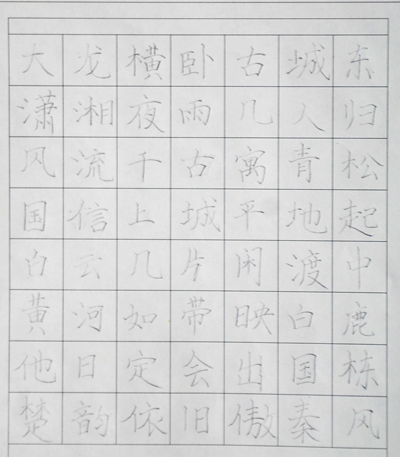 大龙横卧古城东
潇湘夜雨几人归
风流千古寓青松
国信上城平地起
白云几片闲渡中
黄河如带映白鹿
他日定会出国栋
楚韵依旧傲秦风